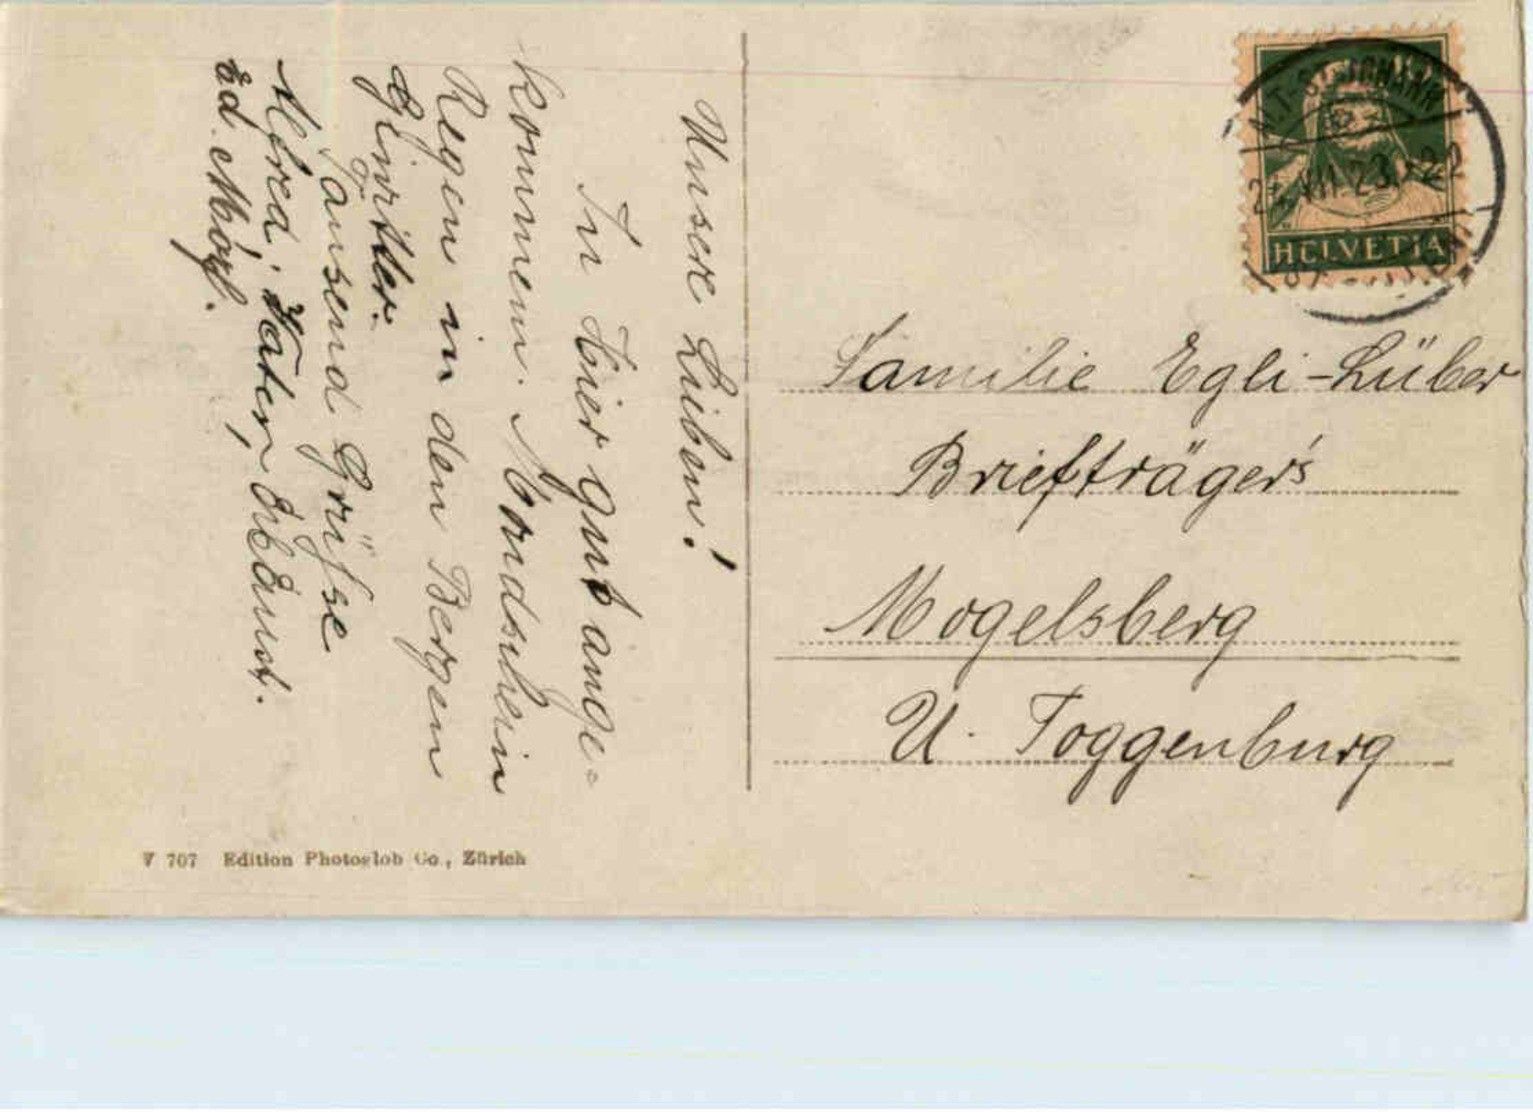 Unsere Lieben!
In Hier gut ange=
kommen. Mondschein
Regen in den Bergen
Gewitter.
Tausend Grüsse
Alfred,
Ed.
HELVETIA
Familie Egli-Lüber
Briefträger's
Mogelsberg
U. Toggenburg
V 707 Edition Photoglob Co., Zürich